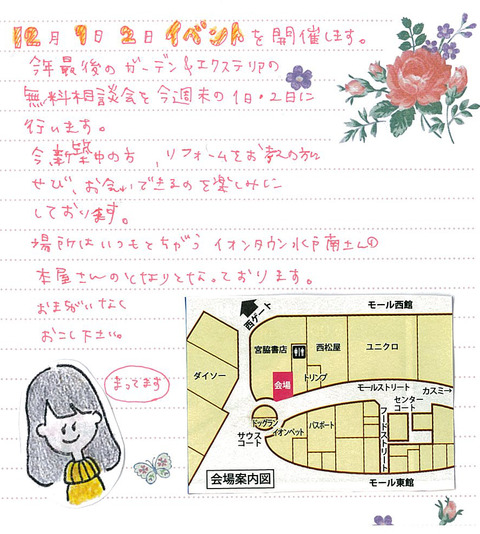 12月1日2日イベントを開催します。
今年最後のガーデン&エクステリアの
無料相談会を今週末の1日・2日に
行います。
今、新築中の方、リフォームをお考えの方に
ぜひ、お会いできるのを楽しみに
しております。
場所はいつもとちがう イオンタウン水戸南さんの
本屋さんのとなりとなっております。
おまちがいなく
おこし下さい。
まってます
西ゲート
モール西館
宮脇書店
西松屋
ユニクロ
ダイソー
会場
トリンプ
モールストリート
カスミ→
センターコート
ドッグラン
イオンペット
パスポート
フードストリート
サウスコート
会場案内図
モール東館